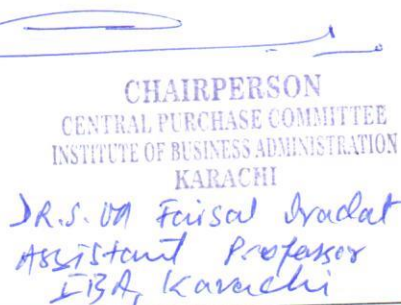 CHAIRPERSON
CENTRAL PURCHASE COMMITTEE
INSTITUTE OF BUSINESS ADMINISTRATION
KARACHI
Faisal Iradat
Assistant Professor
IBA, Karachi